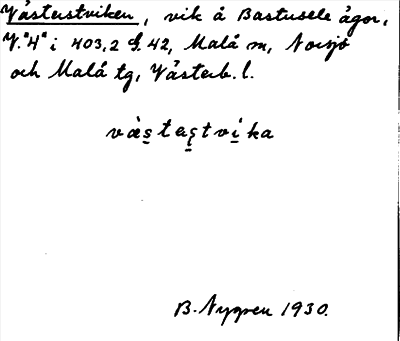 Västerstviken, vik å Bastusele ägor,
V."4" i 403,2 G. 42, Malå sn, Norsjö
och Malå tg, Västerb. l.
väs̲tes̲tvi̲ka
B. Nygren 1930.